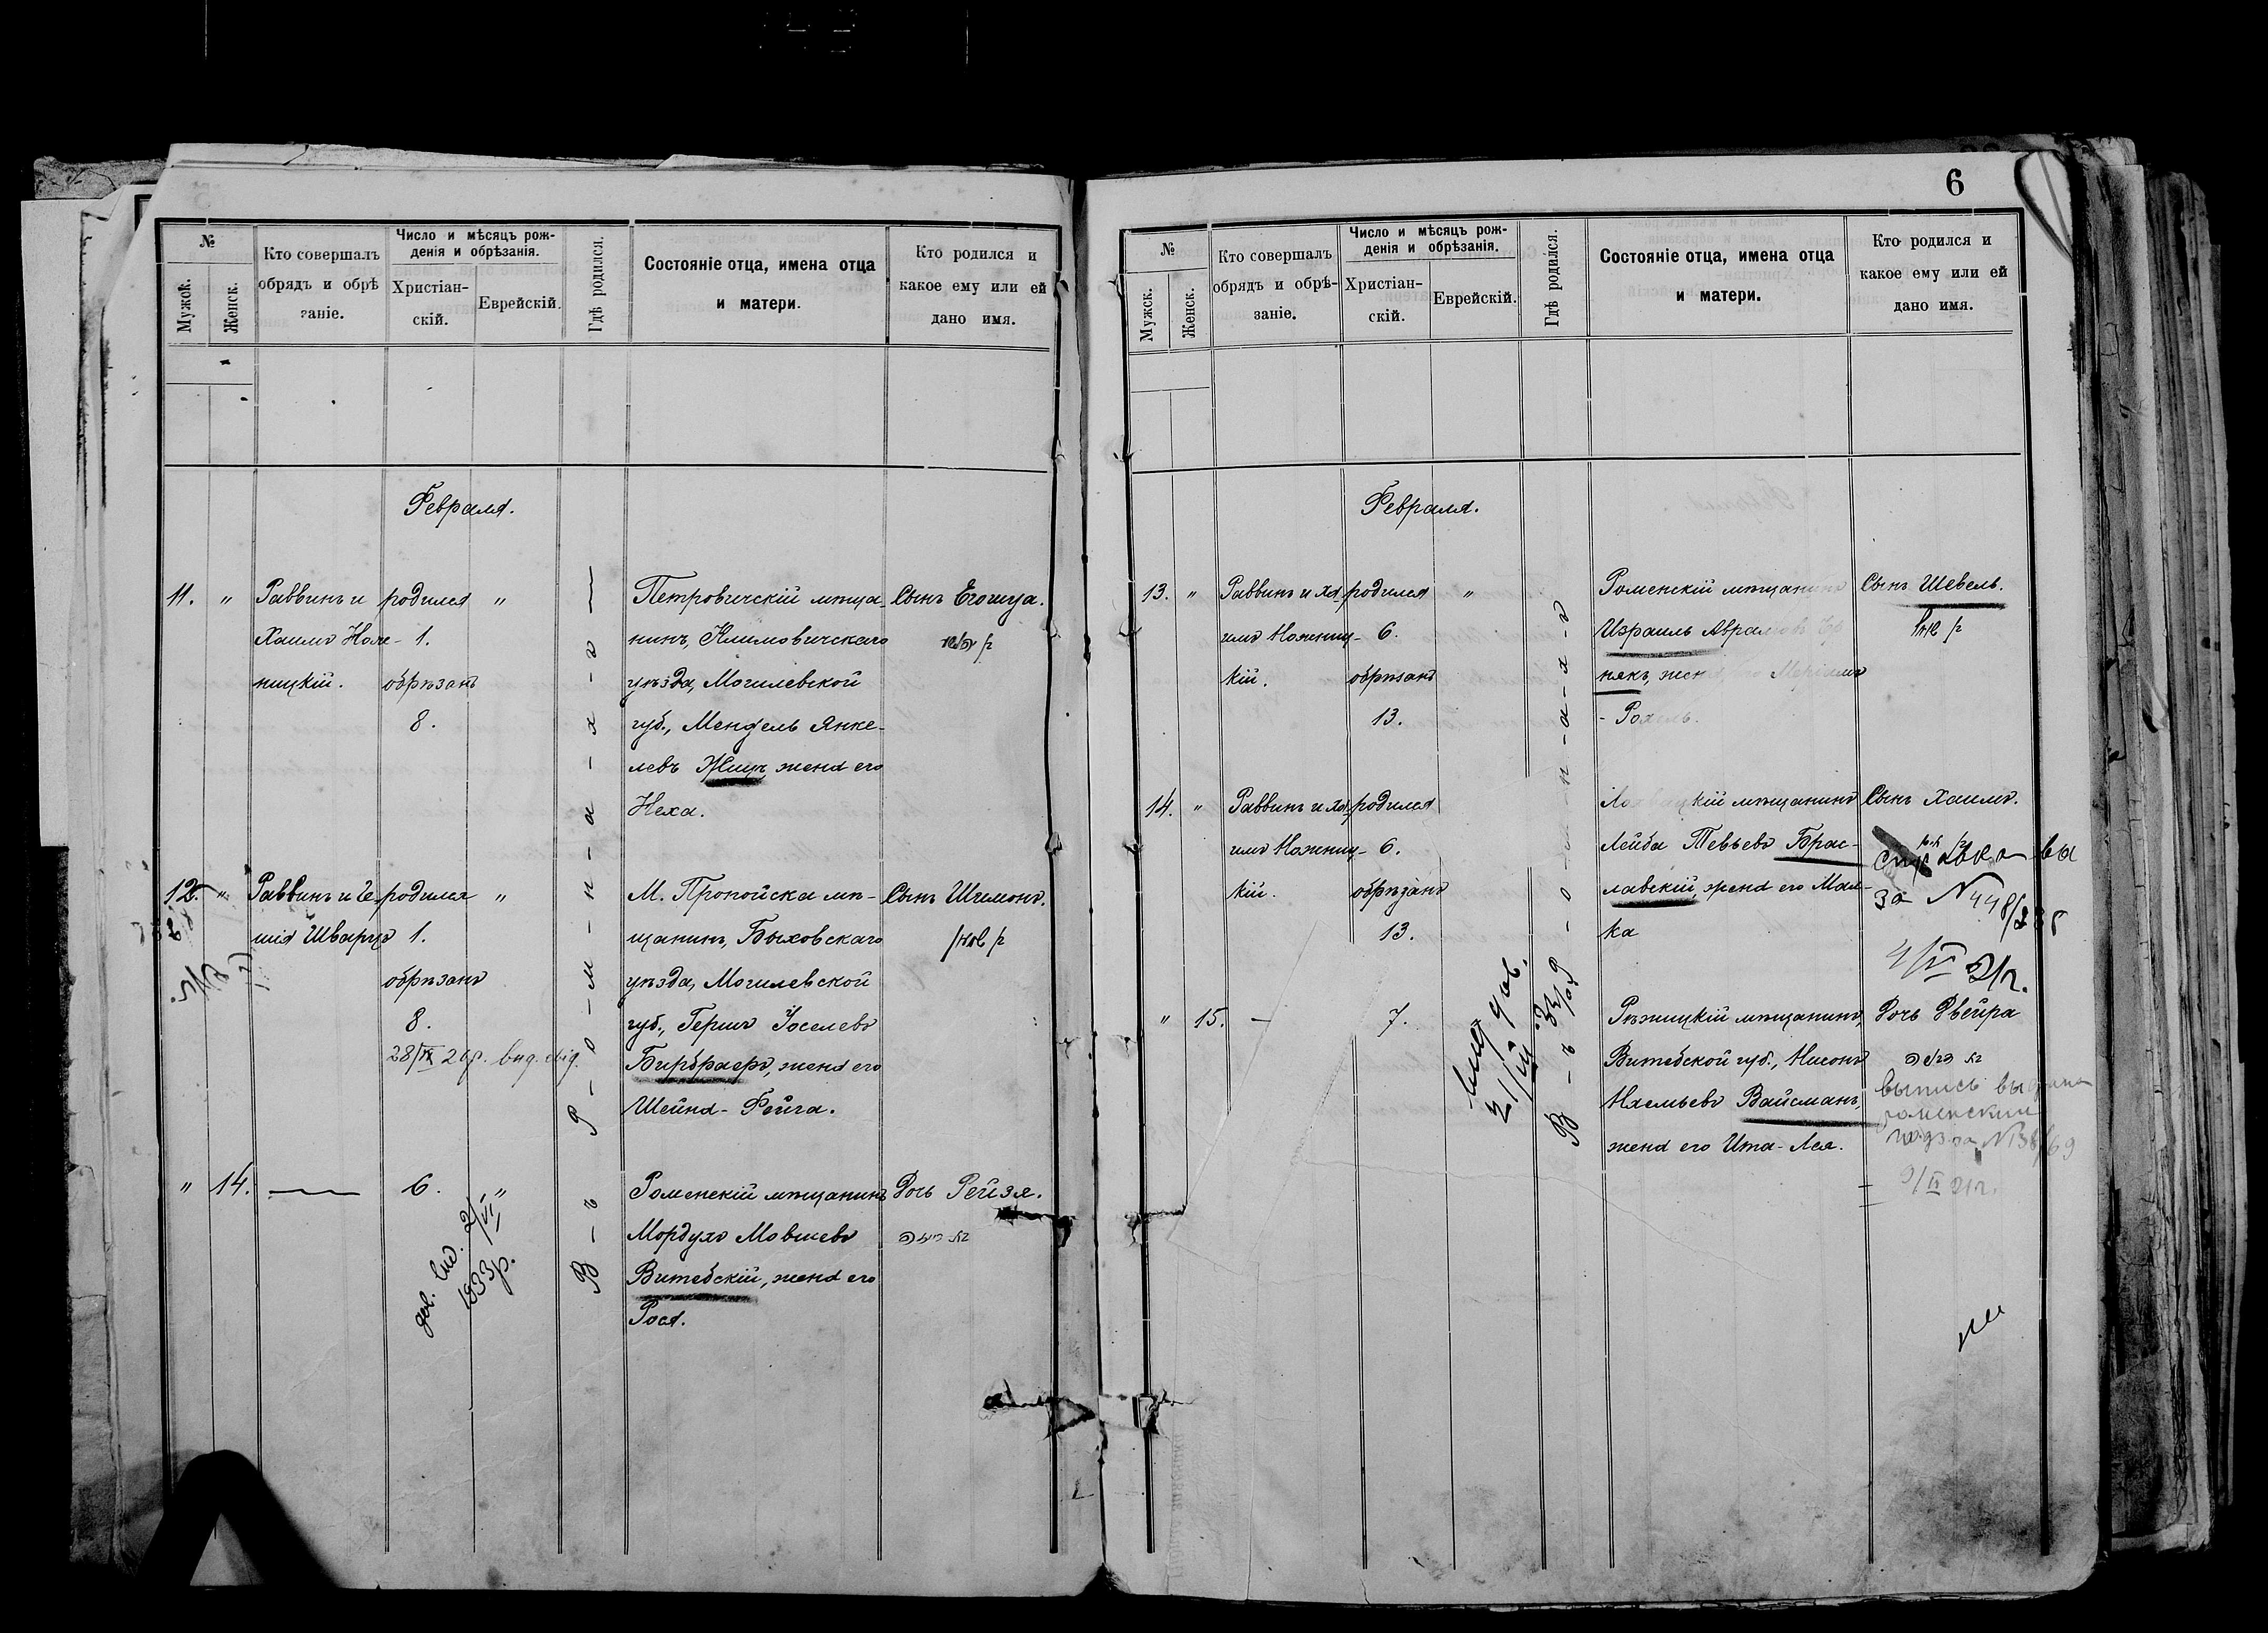 №
Мужск.
Женск.
Кто совершалъ
обрядъ и обрѣ
заніе.
Число и мѣсяцъ рож-
денія и обрѣзанія.
Христіан-
скій.
Еврейскій.
Гдѣ родился.
Состояніе отца, имена отца
и матери.
Кто родился и
какое ему или ей
дано имя.
Февраля.
В-ъ Р-о-м-н-а-х-ъ
11. "
Раввинъ и
Хаимъ Нож-
ницкій.
родился "
1.
обрѣзанъ
8.
Петровичскій мѣща
нинъ, Климовичскаго
уѣзда, Могилевской
губ., Мендель Янке-
левъ жена его
Неха.
Сынъ Егошуа.
12. "
Раввинъ и
Шварцъ
родился "
1.
обрѣзанъ
8.
28/IX 26р. вид. свід.
М. Пропойска мѣ-
щанинъ, Быховскаго
уѣзда, Могилевской
губ., Гершъ Іоселевъ
Бирбраеръ, жена его
Шейна-Фейга.
Сынъ Шлемонъ.
" 14. —
6. "
дов. вид. 2/VI
1933р.
Роменскій мѣщанинъ
Мордухъ Мовшевъ
Витебскій, жена его
Рося.
Дочь Рейзя.
6
№
Мужск.
Женск.
Кто совершалъ
обрядъ и обрѣ-
заніе.
Число и мѣсяцъ рож-
денія и обрѣзанія.
Христіан-
скій.
Еврейскій.
Гдѣ родился.
Состояніе отца, имена отца
и матери.
Кто родился и
какое ему или ей
дано имя.
Февраля.
В-ъ Р-о-м-н-а-х-ъ
13. "
Раввинъ и Ха
имъ Ножниц-
кій.
родился "
6.
обрѣзанъ
13.
Роменскій мѣщанинъ
Израиль
някъ, жена его
-Рохель.
Сынъ Шевель.
14. "
Раввинъ и Ха
имъ Ножниц-
кій.
родился
6.
обрѣзанъ
13.
мѣщанинъ
Лейба Тевьевъ Брас-
лавскій, жена его Мал-
ка
Сынъ Хаимъ.
за N 448
" 15. —
7.
Рѣжицкій мѣщанинъ,
Витебской губ., Нисонъ
Вайсманъ,
жена его Ита-Лея.
Дочь Двейра
выпись выдана
9/IV 21г.